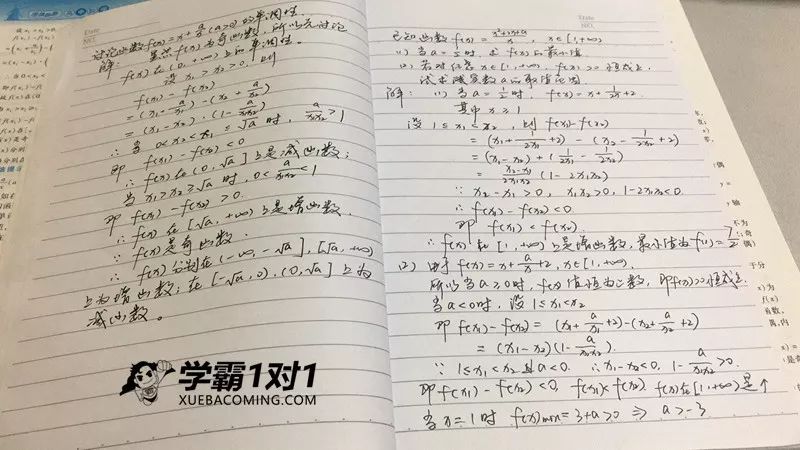 讨论函数f(x)=x+a/x(a>0)的单调性.
解: 显然f(x)为奇函数,所以先讨论
f(x)在(0,+∞)上的单调性.
设x₁>x₂>0,则
f(x₁)-f(x₂)
=(x₁+a/x₁)-(x₂+a/x₂)
=(x₁-x₂)·(1-a/x₁x₂)
∴当0<x₂<x₁≤√a时, a/x₁x₂>1
即f(x₁)-f(x₂)<0
∴f(x)在(0,√a]上是减函数;
当x₁>x₂≥√a时,0<a/x₁x₂<1
即f(x₁)-f(x₂)>0.
∴f(x)在[√a,+∞)上是增函数.
∵f(x)是奇函数.
∴f(x)分别在(-∞,-√a],[√a,+∞)
上为增函数;在[-√a,0),(0,√a]上为
减函数。
学霸1对1
XUEBACOMING.COM
Date
NO.
已知函数f(x)=x²+2x+a/x, x∈[1,+∞)
(1) 当a=1/2时,求f(x)的最小值
(2) 若对任意x∈[1,+∞), f(x)>0恒成立.
试求实数a的取值范围
解: (1) 当a=1/2时, f(x)=x+1/2x+2.
其中x≥1
设1≤x₁<x₂,则f(x₁)-f(x₂)
=(x₁+1/2x₁+2)-(x₂-1/2x₂+2)
=(x₁-x₂)+(1/2x₁-1/2x₂)
=x₂-x₁/2x₁x₂(1-2x₁x₂)
∵x₂-x₁>0, x₁x₂>0,1-2x₁x₂<0.
∴f(x₁)-f(x₂)<0
即f(x₁)<f(x₂)
∴f(x)在[1,+∞)上是增函数,最小值为f(1)=7/2
(2) 由于f(x)=x+a/x+2,x∈[1,+∞),
所以当a≥0时,f(x)值恒为正数,即f(x)>0恒成立.
当a<0时,设1≤x₁<x₂
即f(x₁)-f(x₂)=(x₁+a/x₁+2)-(x₂+a/x₂+2)
=(x₁-x₂)(1-a/x₁x₂).
∵1≤x₁<x₂且a<0. ∴x₁-x₂<0, 1-a/x₁x₂>0.
即f(x₁)-f(x₂)<0, f(x₁)<f(x₂) f(x)在[1,+∞)是↑
当x=1时 f(x)min=3+a>0 ⇒ a>-3